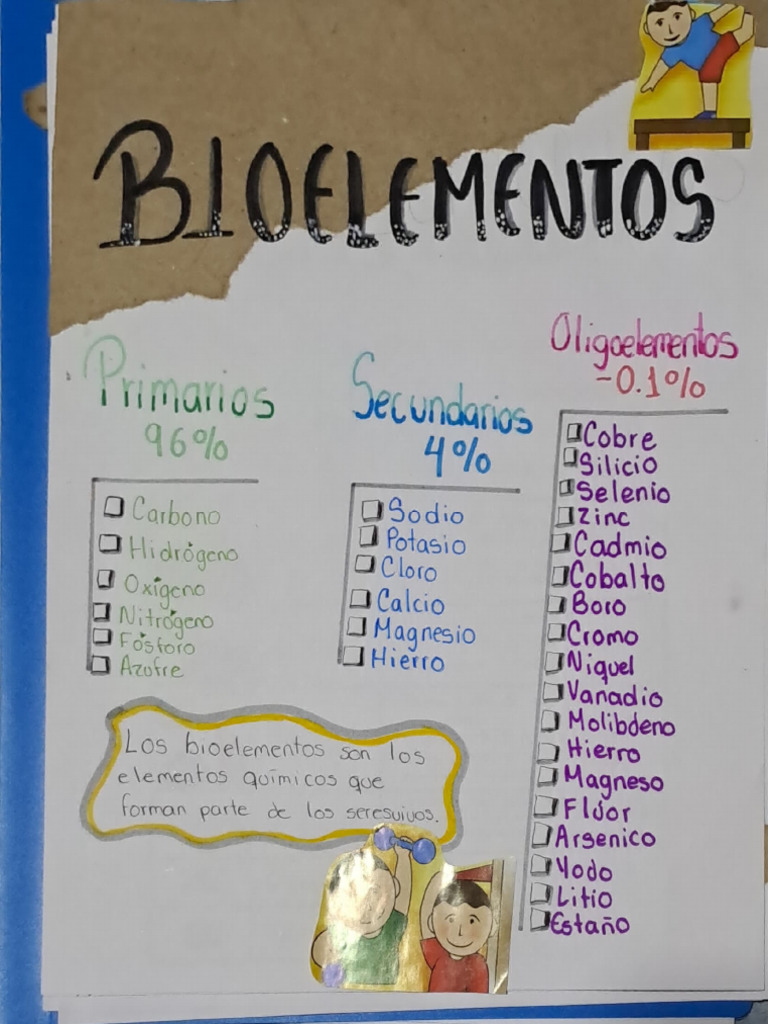 BIOELEMENTOS
Primarios
96%
Carbono
Hidrógeno
Oxígeno
Nitrógeno
Fósforo
Azufre
Secundarios
4%
Sodio
Potasio
Cloro
Calcio
Magnesio
Hierro
Oligoelementos
-0.1%
Cobre
Silicio
Selenio
Zinc
Cadmio
Cobalto
Boro
Cromo
Niquel
Vanadio
Molibdeno
Hierro
Magneso
Flúor
Arsenico
Yodo
Litio
Estaño
Los bioelementos son los
elementos químicos que
forman parte de los seresvivos.